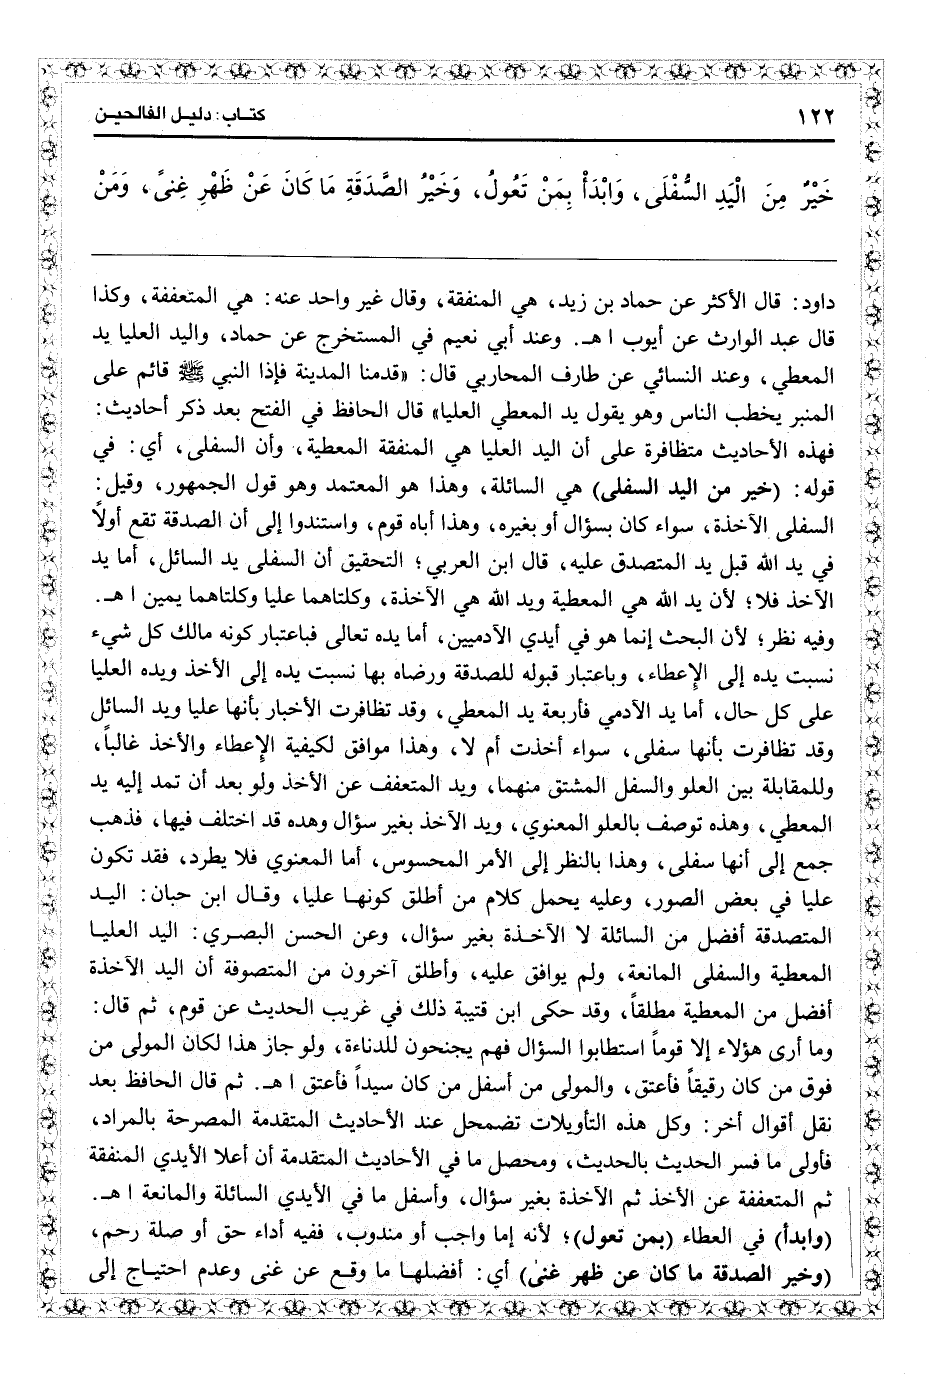 ١٢٢ كتاب: دليل الفالحين
خَيْرٌ مِنَ الْيَدِ السُّفْلَى، وَابْدَأْ بِمَنْ تَعُولُ، وَخَيْرُ الصَّدَقَةِ مَا كَانَ عَنْ ظَهْرِ غِنىً، وَمَنْ
داود: قال الأكثر عن حماد بن زيد، هي المنفقة، وقال غير واحد عنه: هي المتعففة، وكذا
قال عبد الوارث عن أيوب ا هـ. وعند أبي نعيم في المستخرج عن حماد، واليد العليا يد
المعطي، وعند النسائي عن طارف المحاربي قال: «قدمنا المدينة فإذا النبي ﷺ قائم على
المنبر يخطب الناس وهو يقول يد المعطي العليا» قال الحافظ في الفتح بعد ذكر أحاديث:
فهذه الأحاديث متظافرة على أن اليد العليا هي المنفقة المعطية، وأن السفلى، أي: في
قوله: (خير من اليد السفلى) هي السائلة، وهذا هو المعتمد وهو قول الجمهور، وقيل:
السفلى الآخذة، سواء كان بسؤال أو بغيره، وهذا أباه قوم، واستندوا إلى أن الصدقة تقع أولاً
في يد الله قبل يد المتصدق عليه، قال ابن العربي؛ التحقيق أن السفلى يد السائل، أما يد
الآخذ فلا؛ لأن يد الله هي المعطية ويد الله هي الآخذة، وكلتاهما عليا وكلتاهما يمين ا هـ.
وفيه نظر؛ لأن البحث إنما هو في أيدي الآدميين، أما يده تعالى فباعتبار كونه مالك كل شيء
نسبت يده إلى الإِعطاء، وباعتبار قبوله للصدقة ورضاه بها نسبت يده إلى الأخذ ويده العليا
على كل حال، أما يد الآدمي فأربعة يد المعطي، وقد تظافرت الأخبار بأنها عليا ويد السائل
وقد تظافرت بأنها سفلى، سواء أخذت أم لا، وهذا موافق لكيفية الإِعطاء والأخذ غالباً،
وللمقابلة بين العلو والسفل المشتق منهما، ويد المتعفف عن الأخذ ولو بعد أن تمد إليه يد
المعطي، وهذه توصف بالعلو المعنوي، ويد الآخذ بغير سؤال وهده قد اختلف فيها، فذهب
جمع إلى أنها سفلى، وهذا بالنظر إلى الأمر المحسوس، أما المعنوي فلا يطرد، فقد تكون
عليا في بعض الصور، وعليه يحمل كلام من أطلق كونها عليا، وقال ابن حبان: اليد
المتصدقة أفضل من السائلة لا الآخذة بغير سؤال، وعن الحسن البصري: اليد العليا
المعطية والسفلى المانعة، ولم يوافق عليه، وأطلق آخرون من المتصوفة أن اليد الآخذة
أفضل من المعطية مطلقاً، وقد حكى ابن قتيبة ذلك في غريب الحديث عن قوم، ثم قال:
وما أرى هؤلاء إلا قوماً استطابوا السؤال فهم يجنحون للدناءة، ولو جاز هذا لكان المولى من
فوق من كان رقيقاً فأعتق، والمولى من أسفل من كان سيداً فأعتق ا هـ. ثم قال الحافظ بعد
نقل أقوال أخر: وكل هذه التأويلات تضمحل عند الأحاديث المتقدمة المصرحة بالمراد،
فأولى ما فسر الحديث بالحديث، ومحصل ما في الأحاديث المتقدمة أن أعلا الأيدي المنفقة
ثم المتعففة عن الأخذ ثم الآخذة بغير سؤال، وأسفل ما في الأيدي السائلة والمانعة ا هـ.
(وابدأ) في العطاء (بمن تعول)؛ لأنه إما واجب أو مندوب، ففيه أداء حق أو صلة رحم،
(وخير الصدقة ما كان عن ظهر غنى) أي: أفضلها ما وقع عن غنى وعدم احتياج إلى